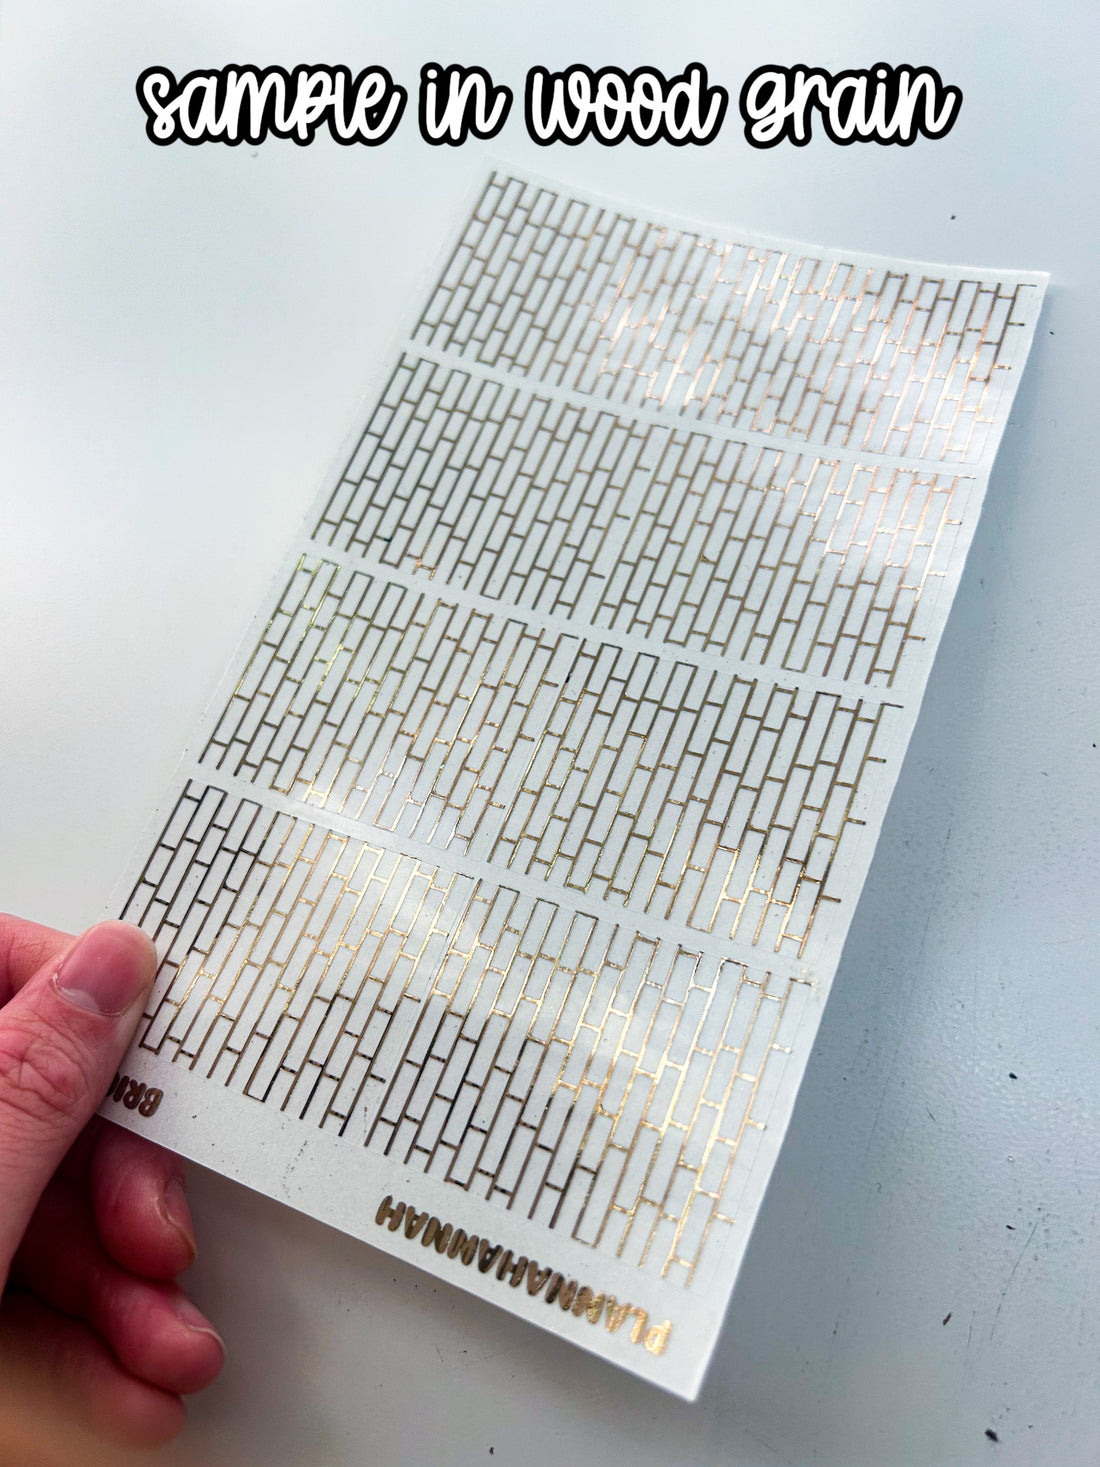 sample in wood grain
PLANNAHANNAH